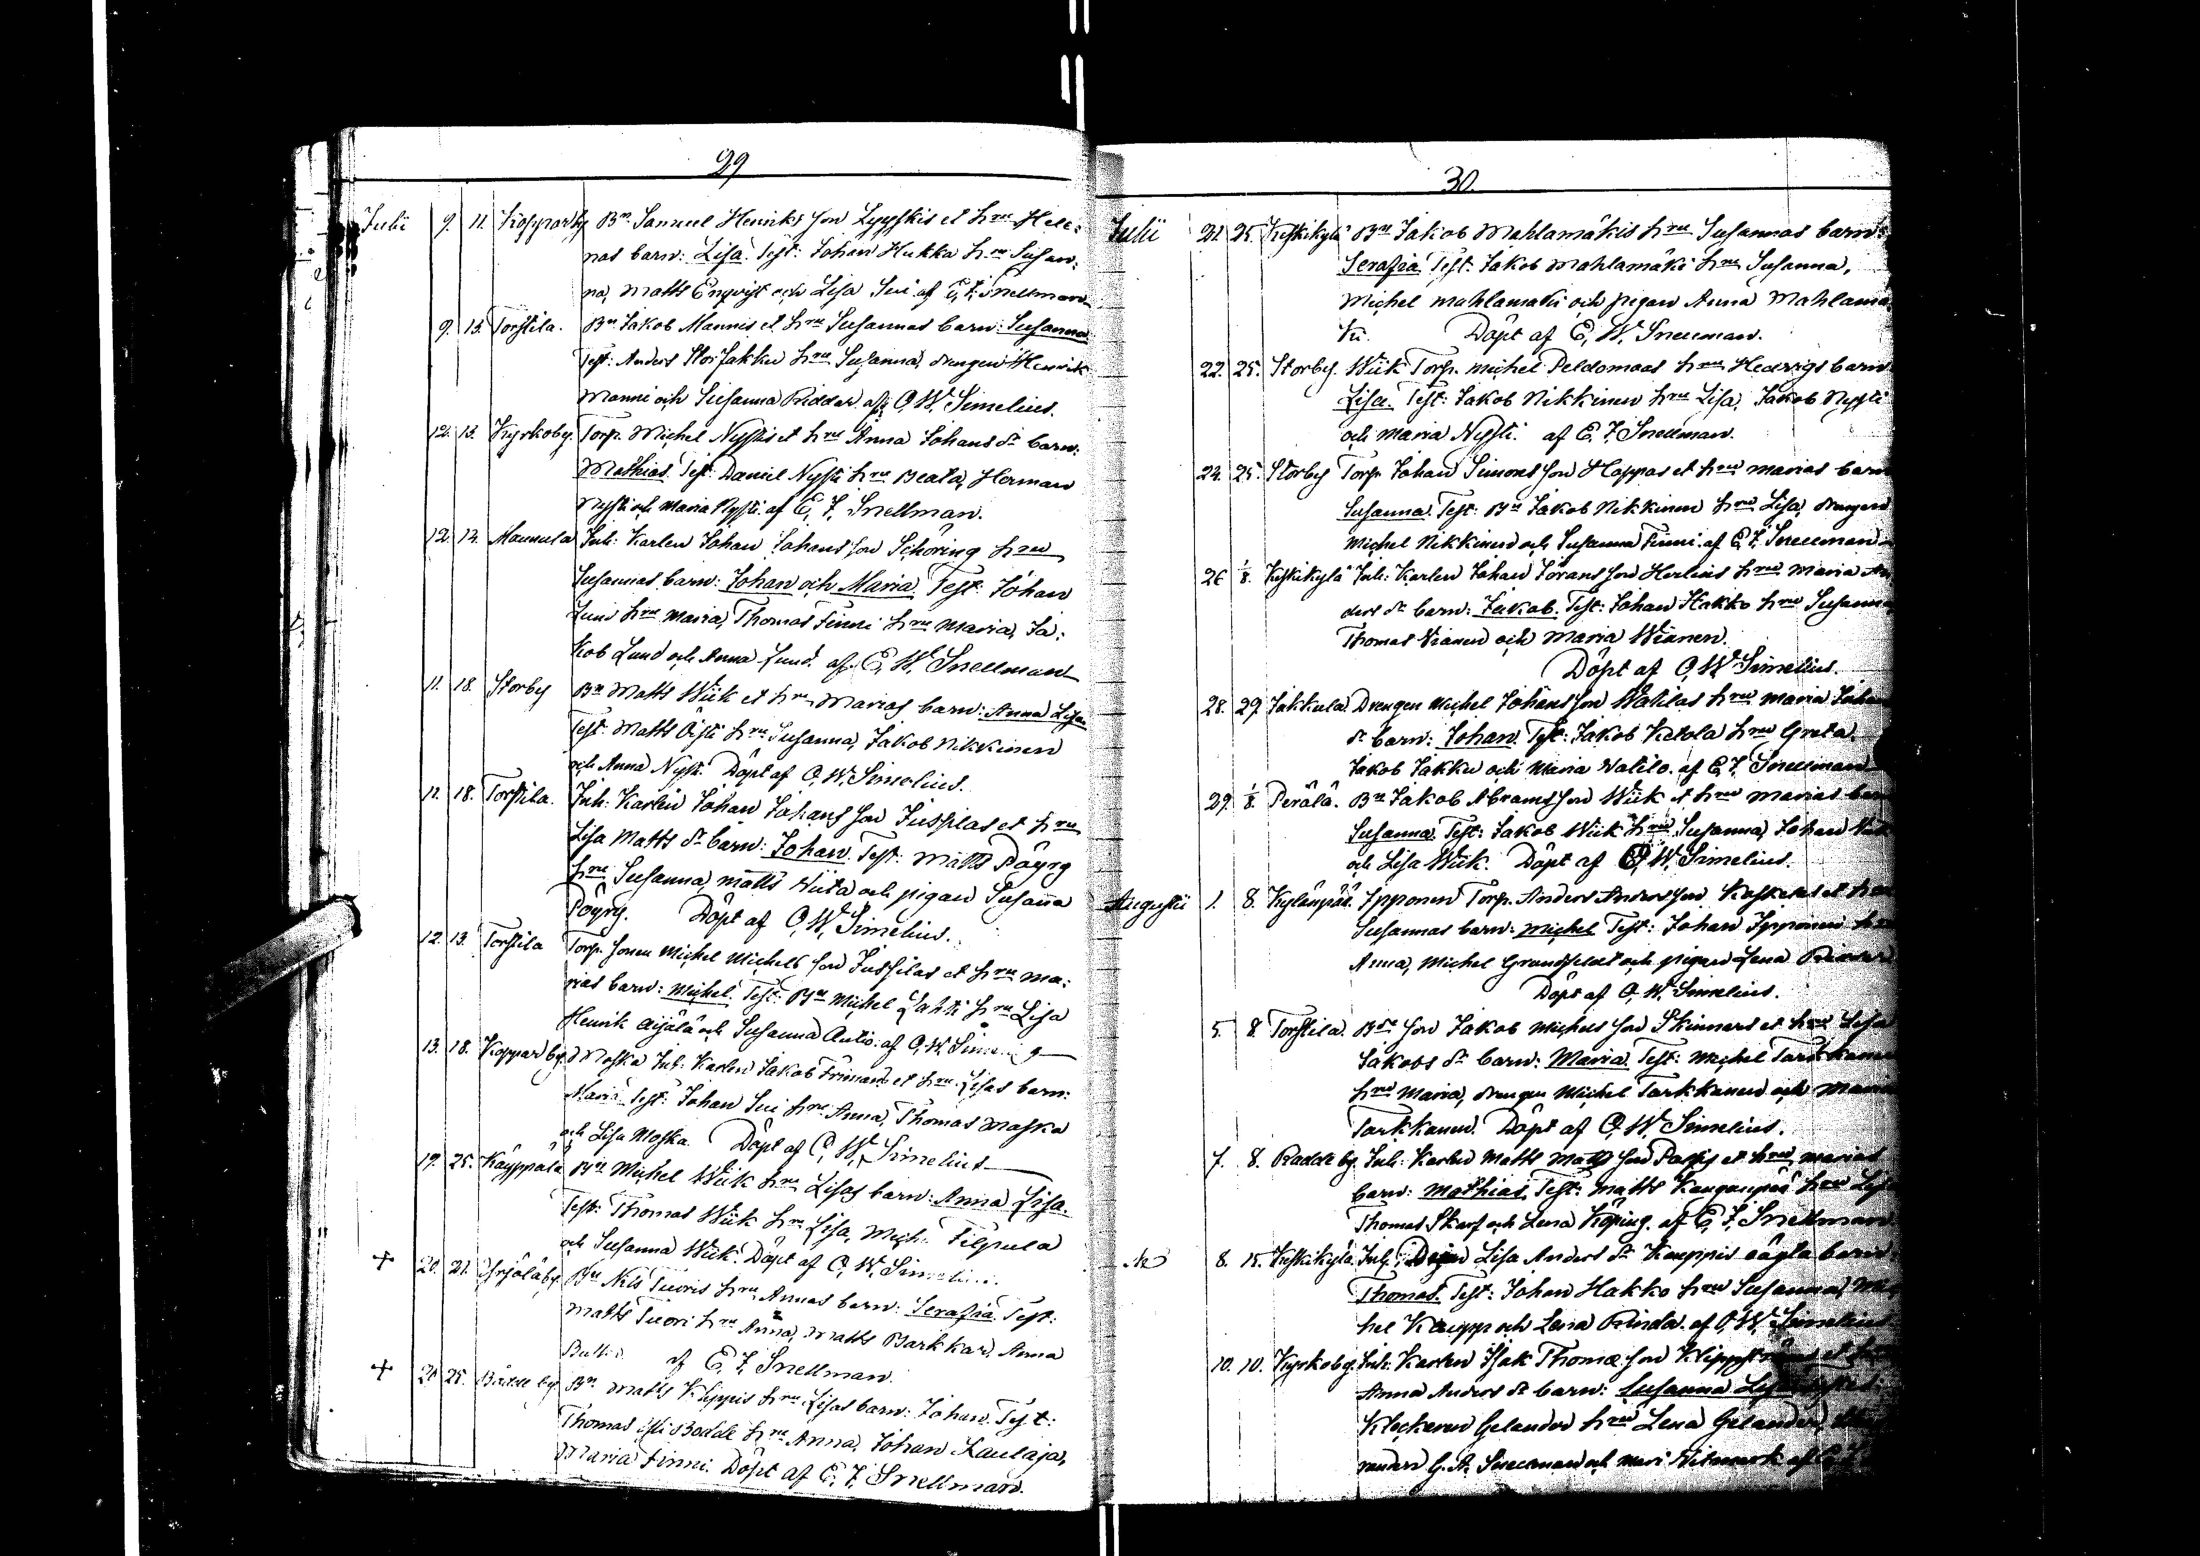 29
Julii 9. 11. Kopparby Bn. Samuel Henriks son Lyyskis et hru Hele:
nas barn: Lisa. Test: Johan Hukka hru Susan:
na, Matts Enqvist och Lisa Sui af E, F, Snellman
9. 13. Torstila. Bn Jakob Mannis et hru Susannas barn: Susanna
Test: Anders StorJakku hru Susanna, drengen Henrik
Manni och Susanna Riddar af O, W, Simelius.
12. 13. Kyrkoby. Torp. Michel Nystis et hru Anna Johans dr barn:
Mathias. Test: Daniel Nysti hru Beata, Herman
Nysti och Maria Nysti. af E, F, Snellman.
12. 12. Mannula Inh: Karlen Johan Johans son Schöring hru
Susannas barn: Johan och Maria. Test: Johan
Lund hru Maria, Thomas Finni hru Maria, Ja:
kob Lund och Anna Lund. af E, W, Snellman
11. 18. Storby Bn Matts Wiik et hru Marias barn: Anna Lisa
Test: Matts Öisti hru Susanna, Jakob Nikkinen
och Anna Nyst. Döpt af O, W, Simelius.
12. 18. Torstila. Inh: Karlen Johan Johans son Jussilas et hru
Lisa Matts dr barn: Johan. Test: Matts Pöyry
hru Susanna, Matts Wiita och pigan Susanna
Pöyry. Döpt af O, W, Simelius.
12. 13. Torstila Torp. sonen Michel Michels son Jussilas et hru Ma:
rias barn: Michel. Test: Bn Michel Lahti hru Lisa
Henrik Äijälä och Susanna Autio. af O, W, Sim
13. 18. Kopparby. Moska Inh: Karlen Jakob Frimans et hru Lisas barn:
Maria Test: Johan Sui hru Anna, Thomas Moska
och Lisa Moska. Döpt af O, W, Simelius
19. 25. Käyppälä Bn Michel Wiik hru Lisas barn: Anna Lisa.
Test: Thomas Wiik hru Lisa, Mich: Filpula
och Susanna Wiik. Döpt af O, W, Simelius.
+ 20. 21. Yrjäläby. Bn Nils Tuoris hru Annas barn: Serafia Test:
Matts Tuori hru Anna, Matts Barkkar, Anna
af E, F, Snellman.
+ 21 25. by. Bn Matts Klippis hru Lisas barn: Johan. Test:
Thomas Badde hru Anna, Johan Kaulaja,
Maria Finni. Döpt af E, F, Snellman.
30.
Julii 21. 25. Keskikylä Bn Jakob Mahlamäkis hru Susannas barn:
Serafia. Test: Jakob Mahlamäki hru Susanna,
Michel Mahlamäki och pigan Anna Mahlamä
ki. Döpt af E, W, Snellman.
22. 25. Storby. Wiik Torp. Michel Peldomaas hru Hedvigs barn:
Lisa. Test: Jakob Nikkinen hru Lisa, Jakob Nysti
och Maria Nysti. af E, F, Snellman.
24. 25. Storby Torp. Johan Simons son Hoppas et hru Marias barn
Susanna. Test: Bn Jakob Nikkinen hru Lisa, drengen
Michel Nikkinen och Susanna Finni. af E, F, Snellman
26 1/8. Keskikylä Inh: Karlen Johan Jörans son Herlins hru Maria An
ders dr barn: Jakob. Test: Johan Hakko hru Susanna
Thomas Wianen och Maria Wianen.
Döpt af O, W, Simelius.
28. 29. Jakkula. Drengen Michel Johans son Watilas hru Maria Johan
dr barn: Johan. Test: Jakob Ketola hru Greta,
Jakob Jakku och Maria Watilo. af E, F, Snellman
29. 1/8. Perälä. Bn Jakob Abrams son Wiik et hru Marias barn
Susanna. Test: Jakob Wiik hru Susanna, Johan Wiik
och Lisa Wiik. Döpt af O, W, Simelius.
Augusti 1. 8. Kylänpää. Ypponen Torp. Anders Anders son Koskelas et hru
Susannas barn: Michel Test: Johan Ypponen hru
Anna, Michel Grundfeldt och pigan Lena
Döpt af O, W, Simelius.
5. 8. Torstila. Bde son Jakob Michels son Skinnars et hru Lisa
Jakobs dr barn: Maria. Test: Michel Tarkkanen
hru Maria, drengen Michel Tarkkanen och Maria
Tarkkanen. Döpt af O, W, Simelius.
7. 8. Badde by. Inh: Karlen Matts Matts son Passis et hru Marias
barn: Mathias. Test: Matts Kangaspää hru Lisa
Thomas Skarf och Lena Köping. af E, F, Snellman
8. 15. Keskikylä Inh: Lisa Anders dr Kauppis oägta barn:
Thomas. Test: Johan Hakko hru Susanna, Mi
hel Kaupp och Lena Rinda. af O, W, Simelius
10. 10. Kyrkoby. Inh: Karlen Isak Thomæ son et
Anna Anders dr barn: Susanna
Klockaren Gelander hru Lena Gelander,
G. A. Snellman och